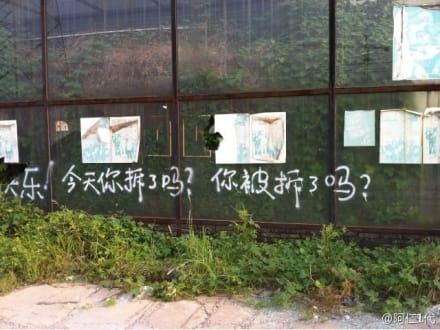 乐!今天你拆了吗?你被拆了吗?
@阿仁1代